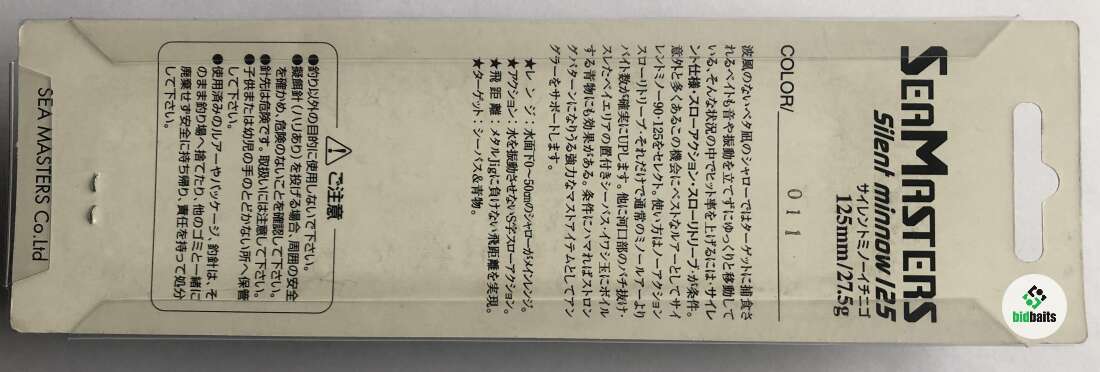 SEAMASTERS
Silent minnow 125
サイレントミノーイチニゴ
125mm/27.5g
COLOR/ 011
波風のないベタ凪のシャローではターゲットに捕食さ
れるベイトも音や振動を立てずにゆっくりと移動して
いる。そんな状況の中でヒット率を上げるには・サイレ
ント仕様・スローアクション・スローリトリーブ・が条件。
意外と多くあるこの機会にベストなルアーとしてサイ
レントミノー90・125をセレクト。使い方はノーアクション
スローリトリーブ・それだけで通常のミノールアーより
バイト数が確実にUPします。他に河口部のバチ抜け・
スレたベイエリアの置付きシーバス・イワシ玉にボイル
する青物にも効果がある。条件にハマればストロン
グパターンになりうる強力なマストアイテムとしてアン
グラーをサポートします。
★レンジ:水面下0〜50cmのシャローがメインレンジ。
★アクション:水を振動させないS字スローアクション。
★飛距離:メタルJigに負けない飛距離を実現。
★ターゲット:シーバス&青物。
ご注意
●釣り以外の目的に使用しないで下さい。
●擬餌針(ハリあり)を投げる場合、周囲の安全
を確かめ、危険のないことを確認して下さい。
●針先は危険です。取扱いには注意して下さい。
●子供または幼児の手のとどかない所へ保管
して下さい。
●使用済みのルアーやパッケージ、釣針は、そ
のまま釣り場へ捨てたり、他のゴミと一緒に
廃棄せず安全に持ち帰り、責任を持って処分
して下さい。
SEA MASTERS Co.,Ltd
bidbaits